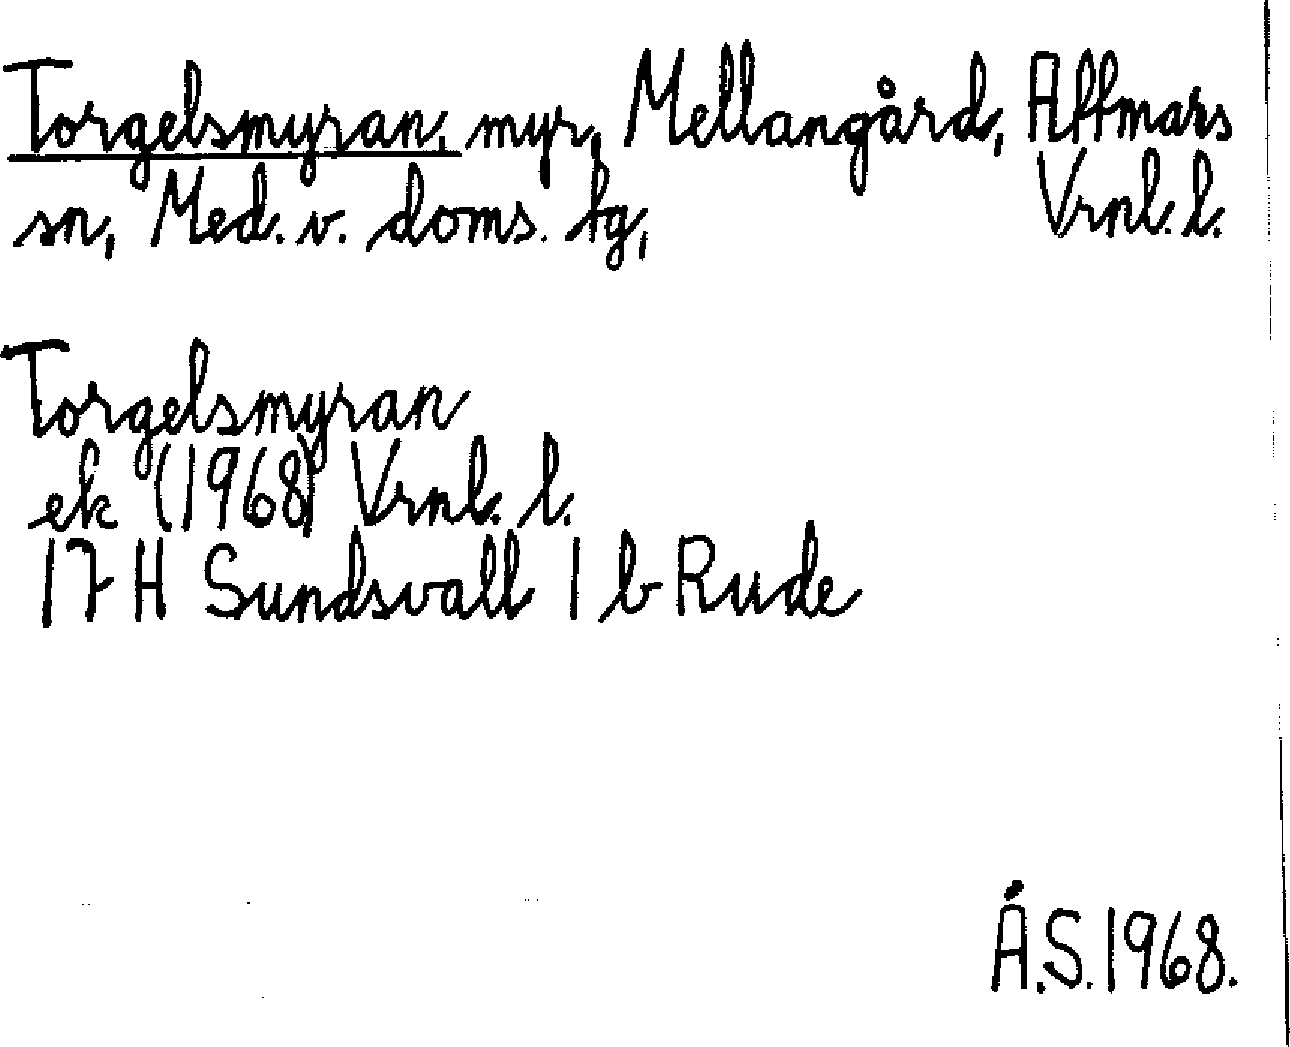 Torgelsmyran, myr, Mellangård, Attmars
sn, Med. v. doms. tg, Vrnl. l.
Torgelsmyran
ek (1968) Vrnl. l.
17 H Sundsvall 1 b Rude
Å.S. 1968.